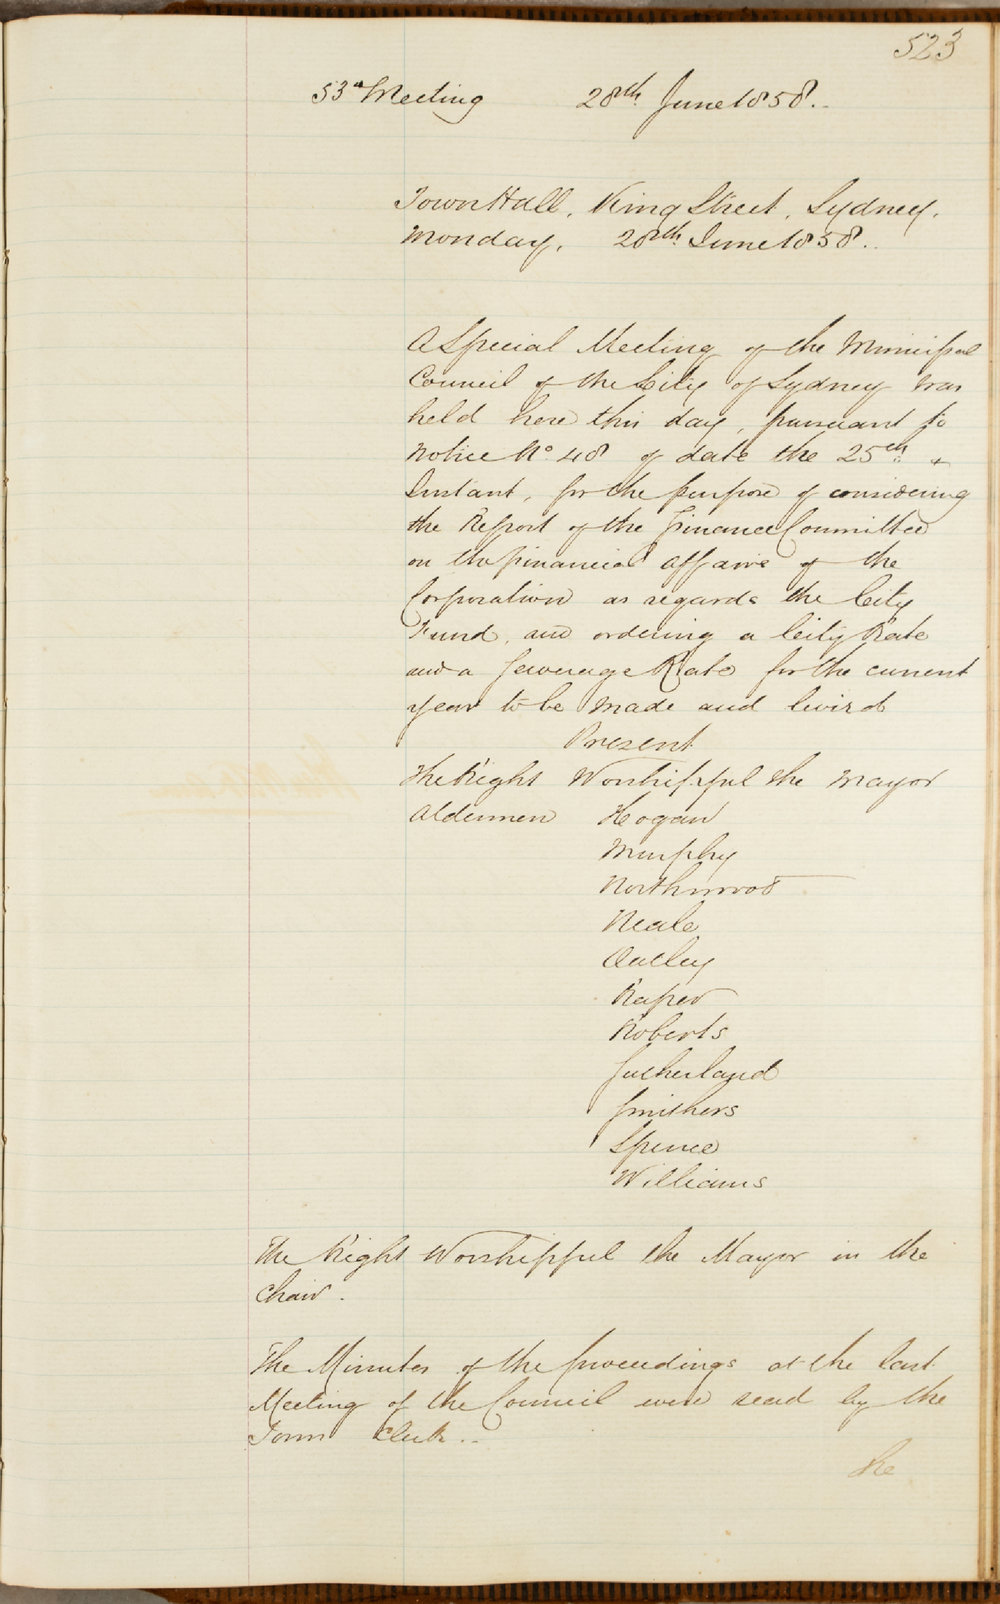 523
53d Meeting 28th June 1858..
Town Hall, King Street, Sydney,
Monday, 28th June 1858..
A Special Meeting of the Municipal
Council of the City of Sydney was
held here this day, pursuant to
Notice No. 48 of date the 25th
Instant, for the purpose of considering
the Report of the Finance Committee
on the financial affairs of the
Corporation as regards the City
Fund, and ordering a City Rate
and a Sewerage Rate for the current
year to be made and levied
Present
The Right Worshipful the Mayor
Aldermen Hogan
Murphy
Northwood
Neale
Oatley
Raper
Roberts
Sutherland
Smithers
Spence
Williams
The Right Worshipful the Mayor in the
Chair.
The Minutes of the proceedings at the last
Meeting of the Council were read by the
Town Clerk..
The